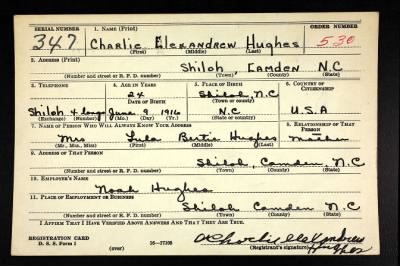 SERIAL NUMBER 1. NAME (Print) ORDER NUMBER
347 Charlie Elexandrew Hughes 530
(First) (Middle) (Last)
2. ADDRESS (Print)
Shiloh, Camden N.C
(Number and street or R. F. D. number) (Town) (County) (State)
3. TELEPHONE 4. AGE IN YEARS 5. PLACE OF BIRTH 6. COUNTRY OF CITIZENSHIP
24 Shiloh, N.C
DATE OF BIRTH (Town or county)
Shiloh 4 long June 9 1916 N.C U.S.A
(Exchange) (Number) (Mo.) (Day) (Yr.) (State or country)
7. NAME OF PERSON WHO WILL ALWAYS KNOW YOUR ADDRESS 8. RELATIONSHIP OF THAT PERSON
Mrs Lula Bertie Hughes Mother
(Mr., Mrs., Miss) (First) (Middle) (Last)
9. ADDRESS OF THAT PERSON
Shiloh, Camden, N.C
(Number and street or R. F. D. number) (Town) (County) (State)
10. EMPLOYER'S NAME
Noah Hughes
11. PLACE OF EMPLOYMENT OR BUSINESS
Shiloh Camden N.C
(Number and street or R. F. D. number) (Town) (County) (State)
I AFFIRM THAT I HAVE VERIFIED ABOVE ANSWERS AND THAT THEY ARE TRUE.
REGISTRATION CARD
D. S. S. Form 1 (over) 16—17105
Charlie Elexandrew
Hughes
(Registrant's signature)